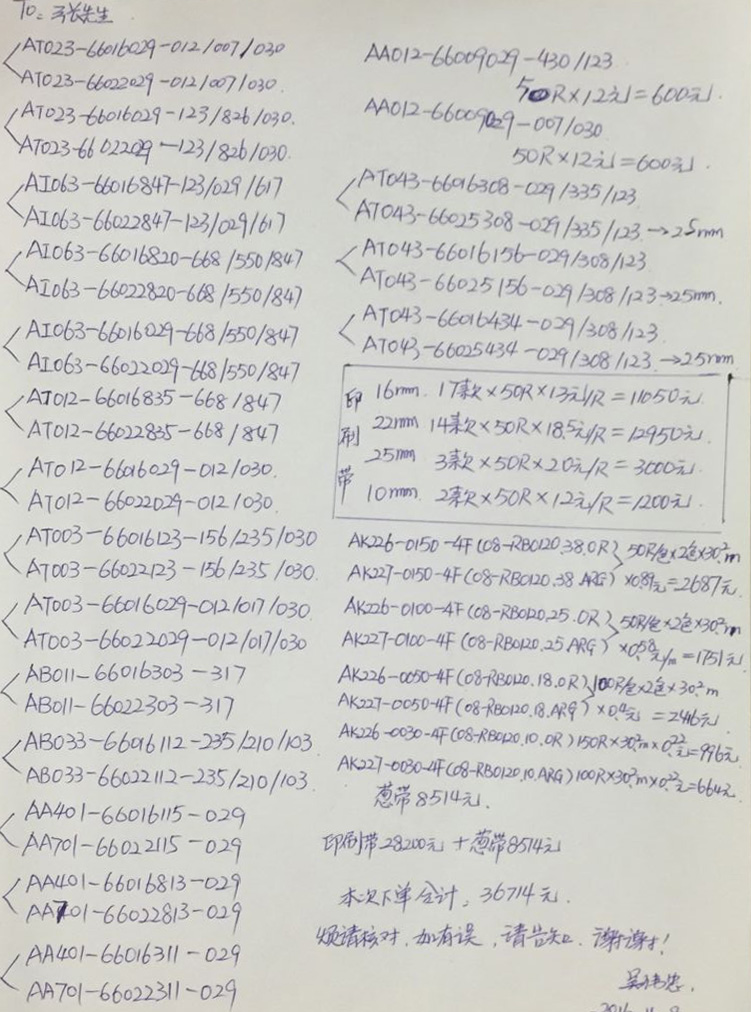 To: 张先生
AT023-66016029-012/007/030
AT023-66022029-012/007/030.
AT023-66016029-123/826/030.
AT023-66022029-123/826/030.
AI063-66016847-123/029/617
AI063-66022847-123/029/617
AI063-66016820-668/550/847
AI063-66022820-668/550/847
AI063-66016029-668/550/847
AI063-66022029-668/550/847
AT012-66016835-668/847
AT012-66022835-668/847
AT012-66016029-012/030.
AT012-66022029-012/030.
AT003-66016123-156/235/030
AT003-66022123-156/235/030.
AT003-66016029-012/017/030
AT003-66022029-012/017/030
AB011-66016303-317
AB011-66022303-317
AB033-66016112-235/210/103
AB033-66022112-235/210/103
AA401-66016115-029
AA701-66022115-029
AA401-66016813-029
AA701-66022813-029
AA401-66016311-029
AA701-66022311-029
AA012-66009029-430/123
50R×12元=600元.
AA012-66009029-007/030
50R×12元=600元.
AT043-66016308-029/335/123
AT043-66025308-029/335/123→25mm
AT043-66016156-029/308/123
AT043-66025156-029/308/123→25mm.
AT043-66016434-029/308/123.
AT043-66025434-029/308/123.→25mm
印刷带
16mm. 17款×50R×13元/R=11050元.
22mm 14款×50R×18.5元/R=12950元.
25mm 3款×50R×20元/R=3000元.
10mm. 2款×50R×12元/R=1200元.
AK226-0150-4F(08-RB0120.38.OR) 50R/色×2色×30.2m
AK227-0150-4F(08-RB0120.38.ARG) ×0.89元=2687元.
AK226-0100-4F(08-RB0120.25.OR) 50R/色×2色×30.2m
AK227-0100-4F(08-RB0120.25.ARG) ×0.58元/m=1751元
AK226-0050-4F(08-RB0120.18.OR) 100R/色×2色×30.2m
AK227-0050-4F(08-RB0120.18.ARG) ×0.4元=2416元
AK226-0030-4F(08-RB0120.10.OR)150R×30.2m×0.22元=996元
AK227-0030-4F(08-RB0120.10.ARG)100R×30.2m×0.22元=664元
葱带8514元.
印刷带28200元+葱带8514元
本次下单合计: 36714元.
烦请核对,如有误,请告知.谢谢!